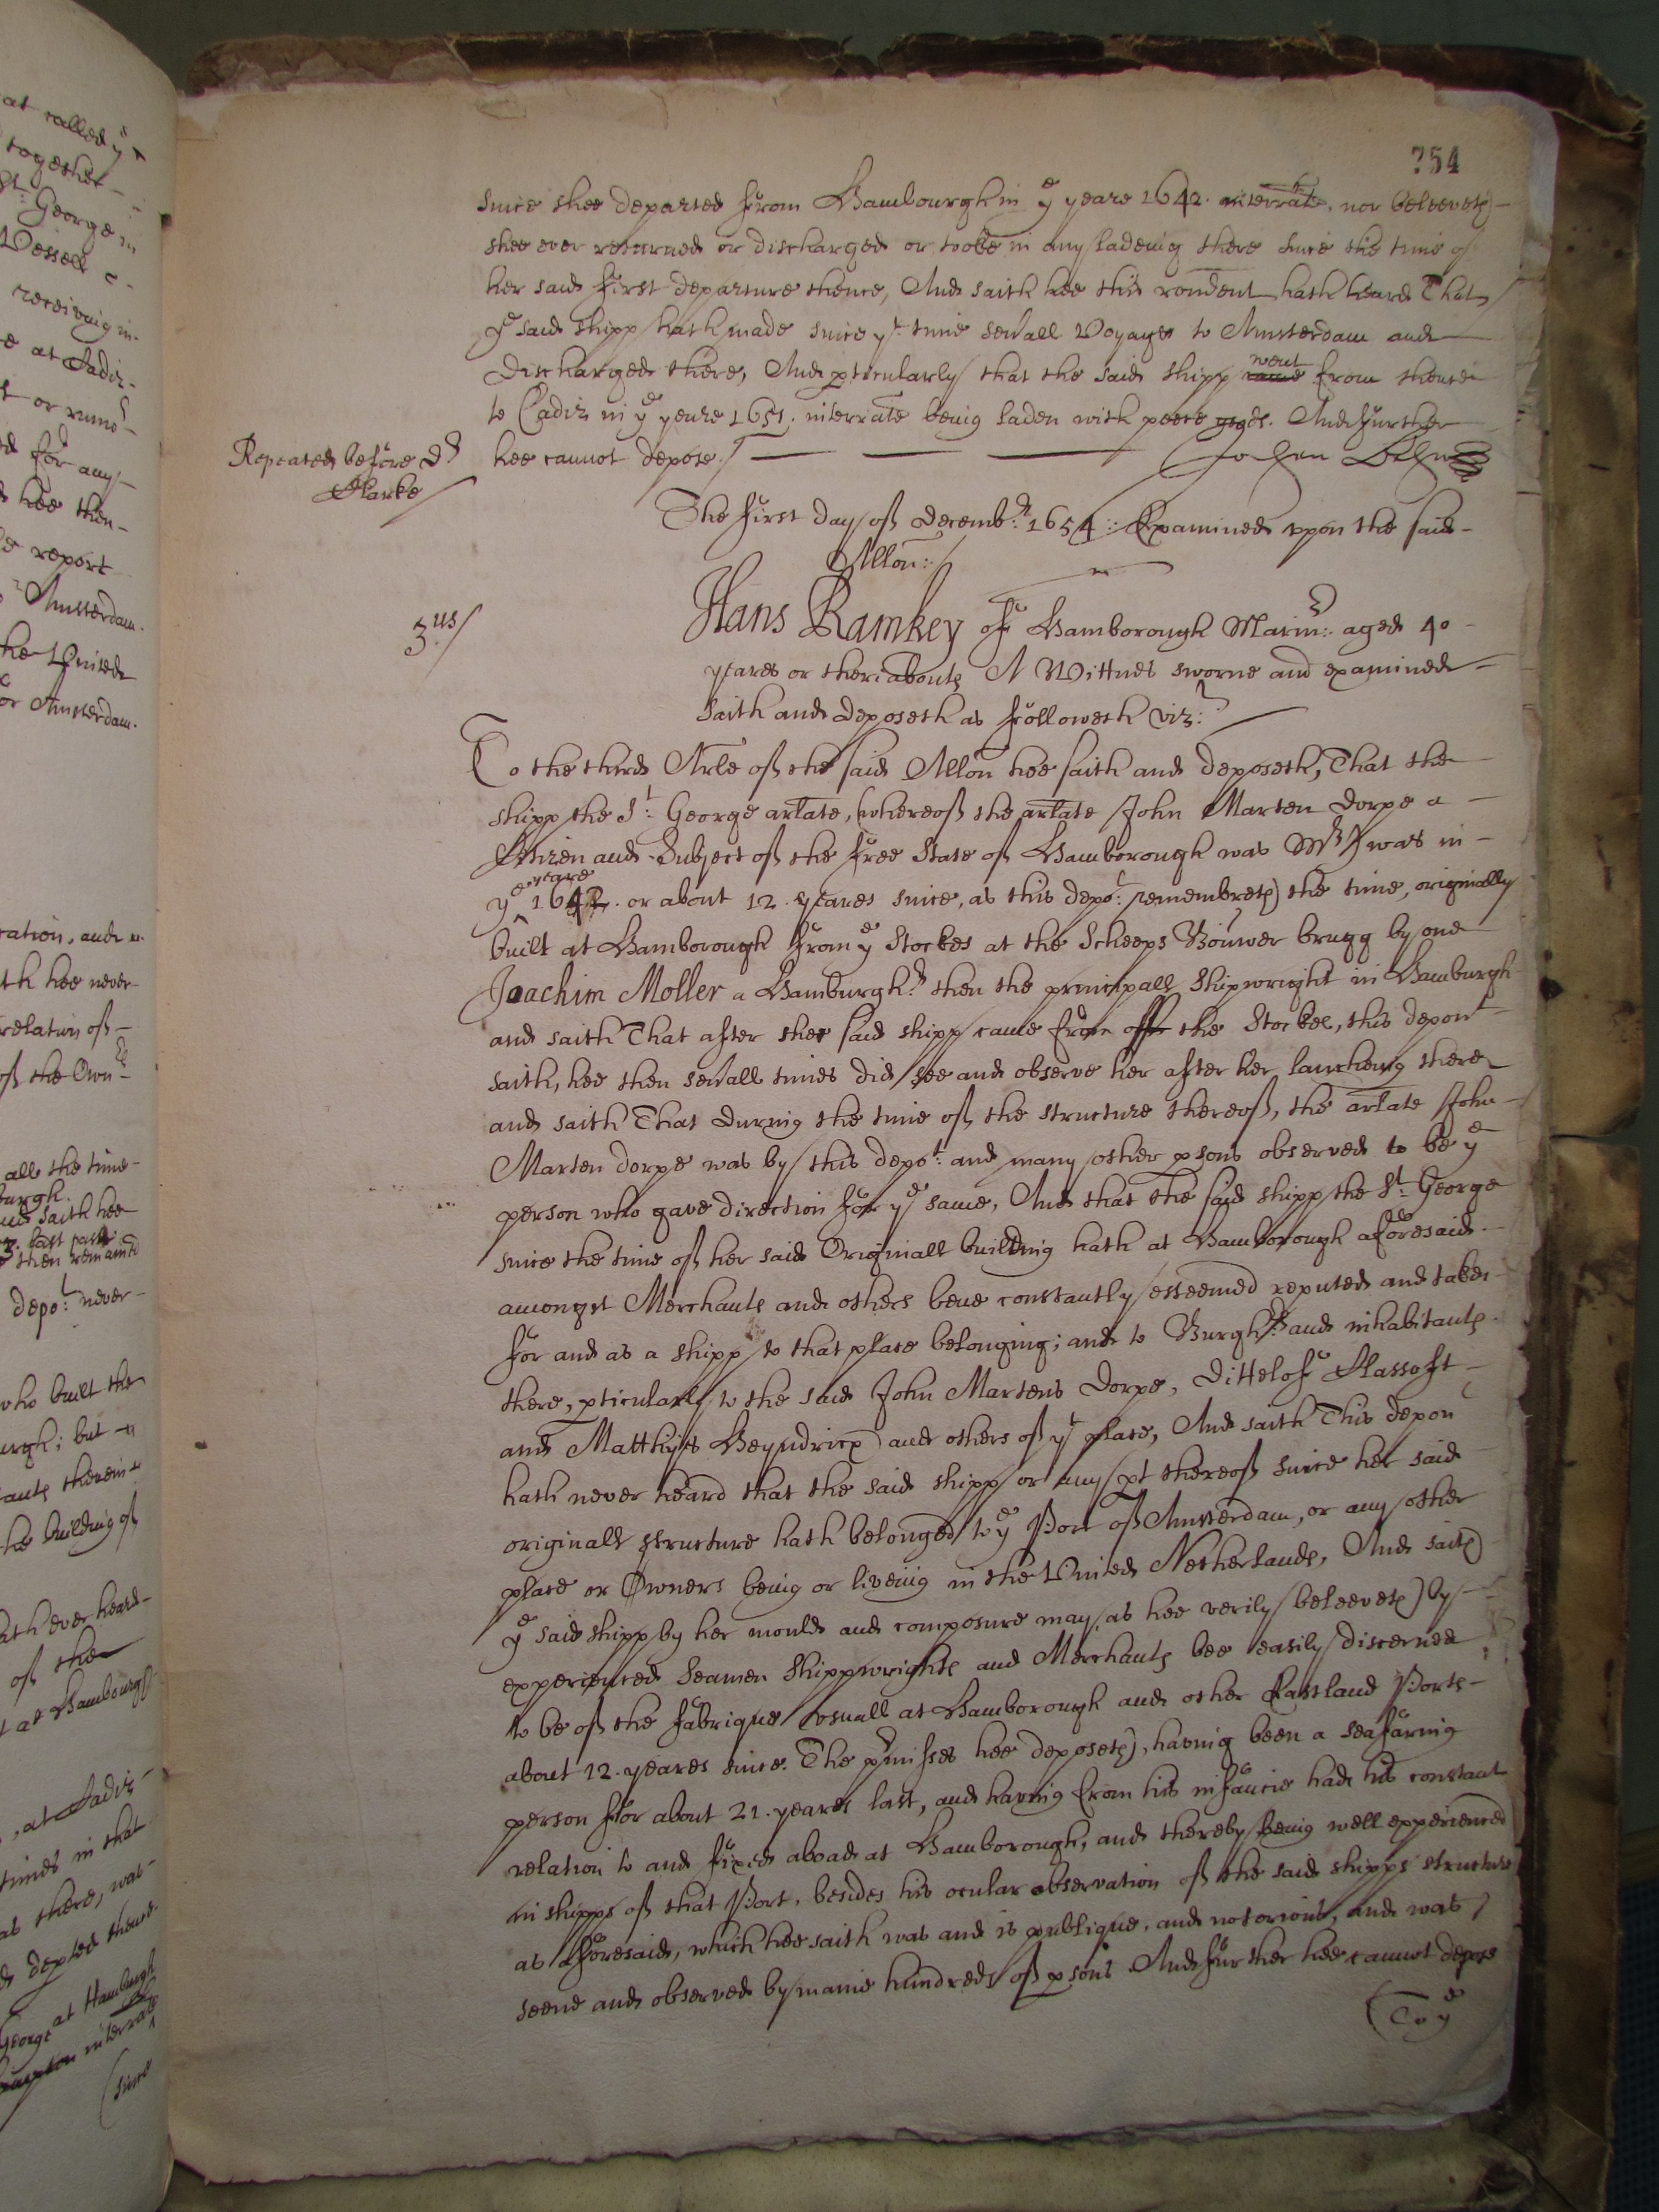 754
since shee departed from Hambourgh in ye yeare 1642. interrate, nor beleeveth
shee ever returned or discharged or tooke in any ladeing there since the time of
her said first departure thence, And saith hee this rondent hath heard That
ye said shipp hath made since yt time severall Voyages to Amsterdam and
discharged there, And perticularly that the said shipp came went from thence
to Cadiz in ye yeare 1651. interrate being laden with peece goods. And further
hee cannot depose./
Repeated before Dr
Clarke
The first day of Decembr: 1654:: Examined upon the said
Allon:/
3us/
Hans Ramkey of Hamborough Marinr: aged 40
yeares or thereabouts A Wittnes sworne and examined
saith and deposeth as followeth vizt:
To the third Arle of the said Allon hee saith and deposeth, That the
shipp the St: George arlate, (whereof the arlate John Marten dorpe a
Citizen and Subject of the free State of Hamborough was Mr) was in
ye yeare 1642. or about 12. yeares since, as this depot: remembreth the time, originally
built at Hamborough from ye Stockes at the Scheeps Bouwer brugg by one
Joachim Moller a Hamburghr: then the principall Shipwright in Hamburgh
and saith That after the said shipp came from off the Stockes, this depont
saith, hee then severall times did see and observe her after her lancheing there
and saith That during the time of the structure thereof, the arlate John
Marten dorpe was by this depot: and many other psons observed to be ye
person who gave direction for ye same, And that the said shipp the St: George
since the time of her said Originall building hath at Hamborough aforesaid
amongst Merchants and others bene constantly esteemed reputed and taken
for and as a shipp to that place belonging; and to Burghrs: and inhabitants
there, pticularly to the said John Martens Dorpe, Dittelof Classoft
and Matthijs Heyndricx and others of yt place, And saith This depont
hath never heard that the said shipp or any pt thereof since her said
originall structure hath belonged to ye Port of Amsterdam, or any other
place or Owners being or liveing in the United Netherlands, And saith
ye said shipp by her mould and composure may, as hee verily beleeveth by
experienced Seamen Shippwrights and Merchants bee easily discerned
to be of the fabrique usuall at Hamborough and other Eastland Ports
about 12. yeares since. The prmisses hee deposeth, having been a seafaring
person for about 21. yeares last, and having from his infancie had his constant
relation to and fixed aboad at Hamborough, and thereby being well experienced
in shipps of that Port, besides his ocular observation of the said shipps structure
as aforesaid, which hee saith was and is publique, and notorious, and was
seene and observed by manie hundreds of psons And further hee cannot depose
To ye